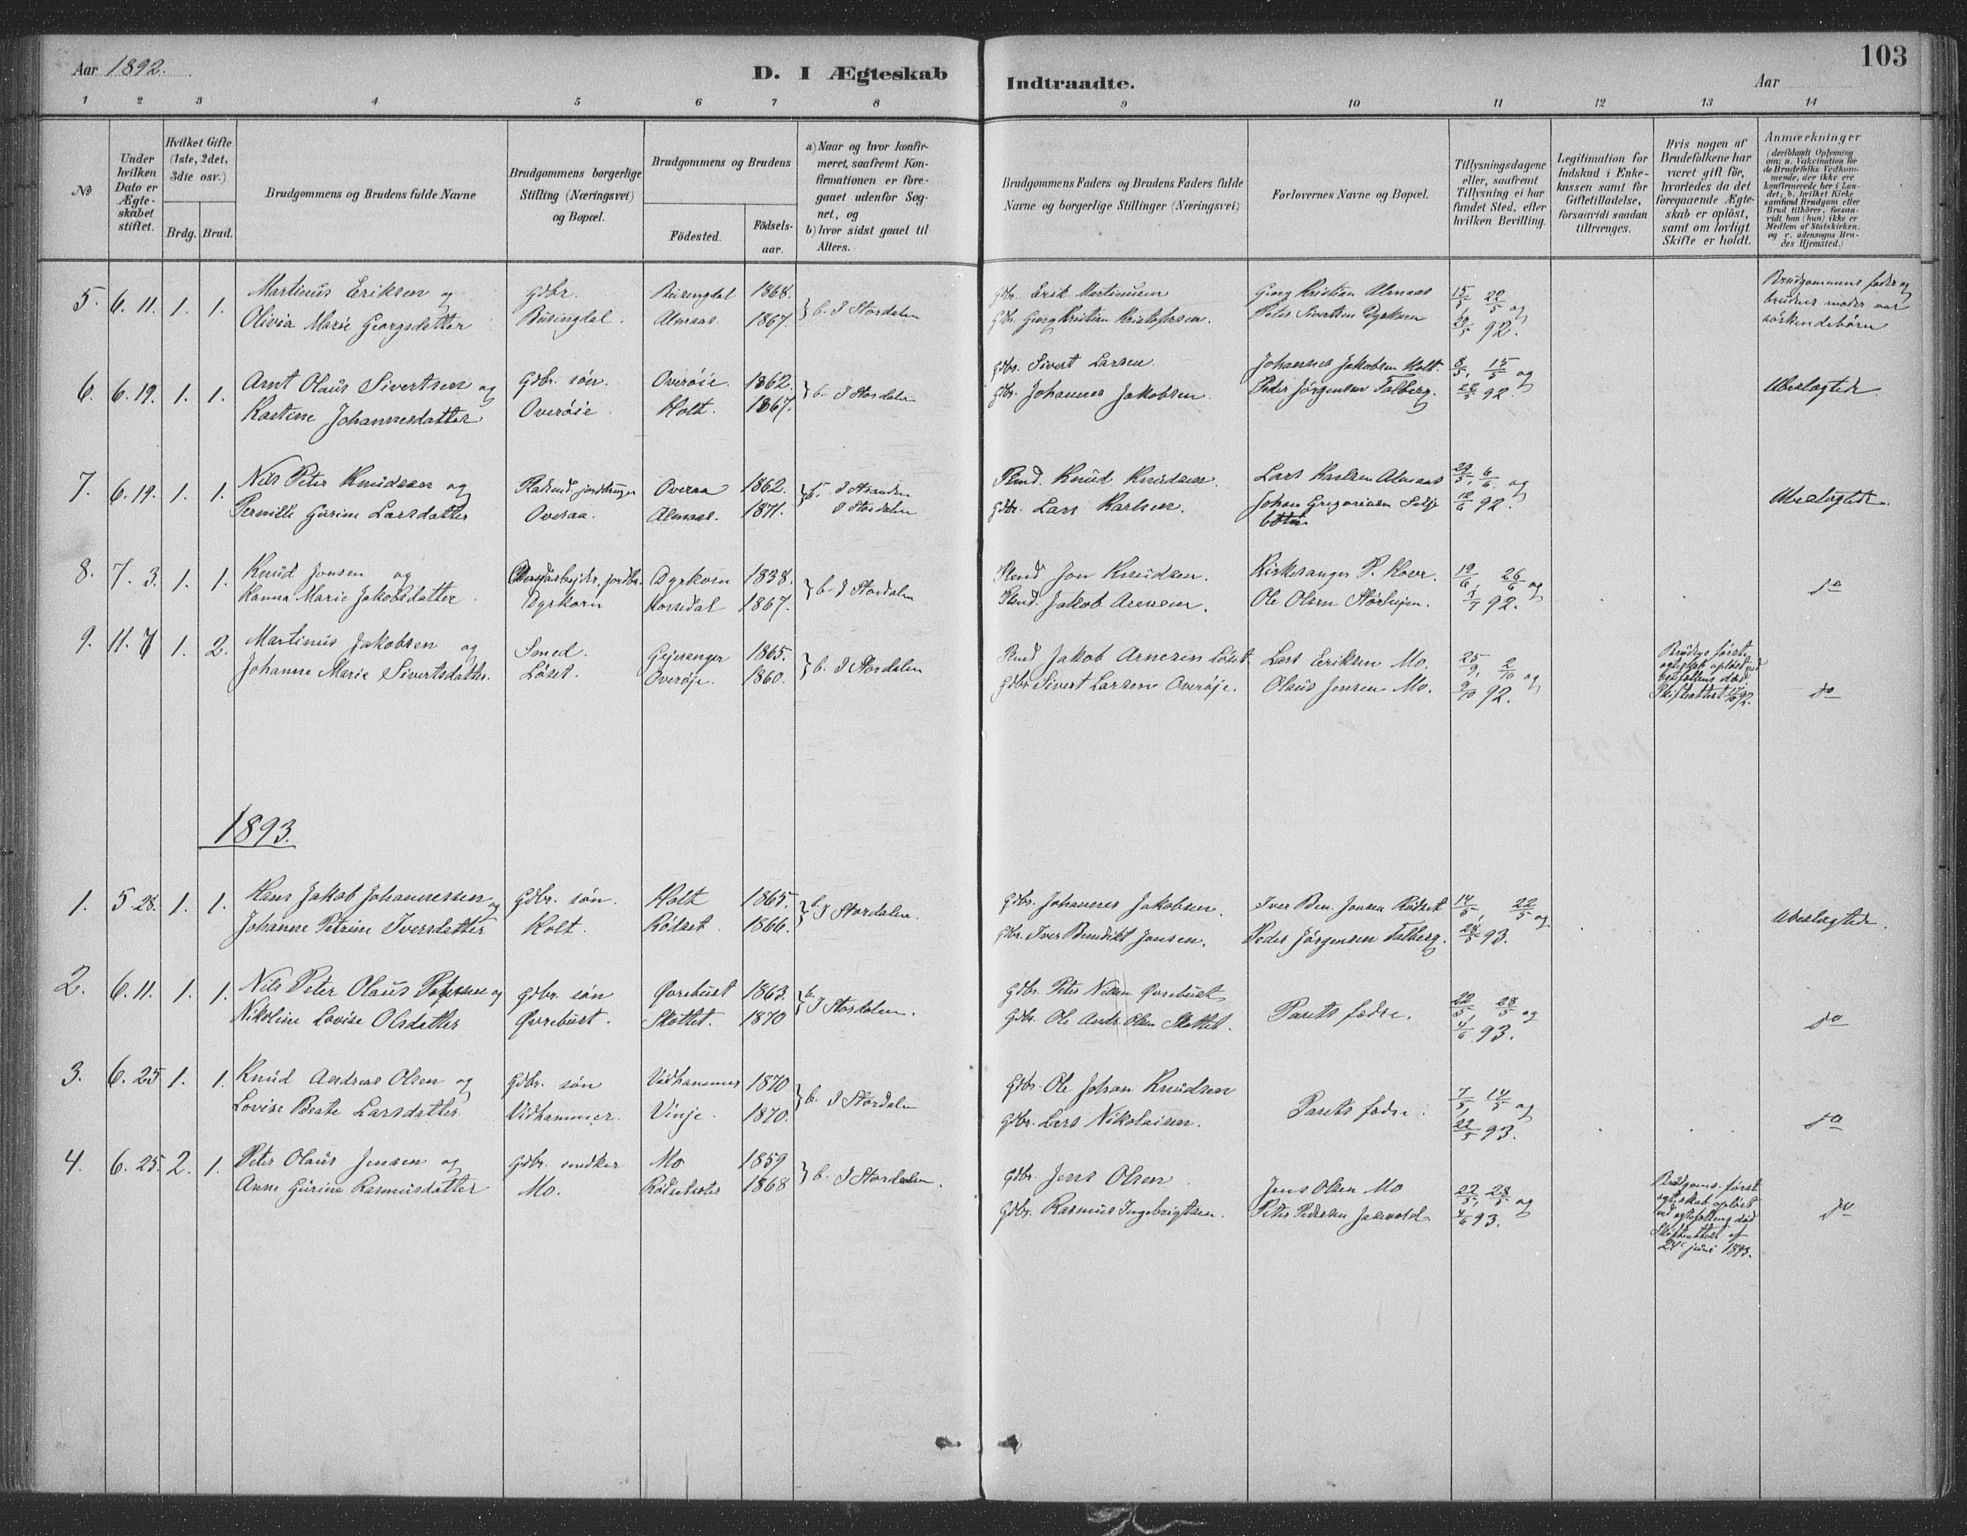 Aar 1892.
D. I Ægteskab
Indtraadte.
Aar
103
1 2 3 4 5 6 7 8 9 10 11 12 13 14
No
Under hvilken Dato er Ægte-skabet stiftet.
Hvilket Gifte (1ste, 2det, 3die osv.)
Brdg. Brud.
Brudgommens og Brudens fulde Navne
Brudgommens borgerlige Stilling (Næringsvei) og Bopæl.
Brudgommens og Brudens
Fødested.
Fødsels-aar.
a) Naar og hvor konfir-meret, saafremt Kon-firmationen er fore-gaaet udenfor Sog-net, og
b) hvor sidst gaaet til Alters.
Brudgommens Faders og Brudens Faders fulde Navne og borgerlige Stillinger (Næringsvei)
Forlovernes Navne og Bopæl.
Tillysningsdagene eller, saafremt Tillysning ei har fundet Sted, efter hvilken Bevilling.
Legitimation for Indskud i Enke-kassen samt for Giftetilladelse, forsaavidt saadan tiltrænges.
Hvis nogen af Brudefolkene har været gift før, hvorledes da det foregaaende Ægte-skab er opløst, samt om lovligt Skifte er holdt.
Anmærkninger
(deriblandt Oplysning om: a. Vakcination for de Brudefolks Vedkom-mende, der ikke ere konfirmerede her i Lan-det; b. hvilket Kirke-samfund Brudgom eller Brud tilhører, forsaa-vidt han (hun) ikke er Medlem af Statskirken, og c. udensogns Bru-des Hjemsted.)
5. 6. 11. 1. 1. Martinus Eriksen og Gdbr. 1868. b. I Stordalen Gdbr. Erik Martinusen Georg Kristian Almaas 15/5, 22/5 og Brudgommens fader og
Olivia Marie Georgsdatter Almaas 1867. Gdbr. Georg Kristian Kristofersen. Peter Sivertsen Dyrkorn 29/5 92. brudens moder var
søskendebørn
6. 6. 19. 1. 1. Arnt Olaus Sivertsen og Gdbr. søn. Overøie. 1862. b. I Stordalen Gdbr. Sivert Larsen Johannes Jakobsen Holt. 8/5, 15/5 og Ubeslægtede
Kastine Johannesdatter Overøie. Holt. 1867. Gdbr. Johannes Jakobsen. Peder Jörgensen Talberg. 22/5 92.
7. 6. 19. 1. 1. Nils Peter Knudsen og Overaa 1862. b. I Stranden Knud Knudsen. Lars Karlsen Almaas 29/5, 6/6 og Ubeslægtede
Pernille Gurine Larsdatter Overaa. Almaas. 1871. I Stordalen Gdbr. Lars Karlsen. Johan Gregoriusen
12/6 92.
8. 7. 3. 1. 1. Knud Jonsen og Dyrkorn 1838. b. I Stordalen Jon Knudsen. Kirkesanger P. Hovr. 19/6, 26/6 og do
Hanna Marie Jakobsdatter. Dyrkorn 1867. Jakob Arnesen. Ole Olsen 3/7 92.
9. 11. 7 1. 2. Martinus Jakobsen og Smed. Gejeranger 1865. b. I Stordalen Jakob Arnesen Löset. Lars Eriksen Mo. 25/9, 2/10 og
Johanne Marie Sivertsdatter. Löset. Overøje. 1860. Gdbr Sivert Larsen Overøje. Olaus Jensen Mo. 9/10 92. do
1893.
1. 5. 28. 1. 1. Hans Jakob Johannessen og Gdbr. søn. Holt 1865. b. I Stordalen. Gdbr. Johannes Jakobsen. Iver Ben. Jonsen Rödset 14/5, 22/5 og Ubeslægtede.
Johanne Petrine Iversdatter Holt. Rödset. 1866. Gdbr. Iver Benedikt Jonsen. Peder Jörgensen Talberg. 28/5 93.
2. 6. 11. 1. 1. Nils Peter Olaus Petersen og Gdbr. søn Øvrebust 1863. b. I Stordalen. Gdbr. Peter Nilsen Øvrebust Parets fædre. 22/5, 28/5 og do
Nikoline Lovise Olsdatter Øvrebust. Støttet. 1870 Gdbr. Ole Andr. Olsen Støttet. 4/6 93.
3. 6. 25 1. 1. Knud Andreas Olsen og Gdbr. søn Vidhammer 1870 b. I Stordalen Gdbr. Ole Johan Knudsen Parets fædre. 7/5, 14/5 og do
Lovise Beate Larsdatter Vidhammer. Vinje. 1870. Gdbr. Lars Nikolaisen. 22/5 93.
4. 6. 25. 2. 1. Peter Olaus Jensen og Gdbr. enker Mo 1859 b. I Stordalen. Gdbr. Jens Olsen Jens Olsen Mo 22/5, 28/5 og Brudgoms. først ægteskab opløst ved
Anne Gurine Rasmusdatter Mo. 1868 Gdbr. Rasmus Ingebrigtsen. Peter Pedersen 4/6 93. død do
24de juni 1893.